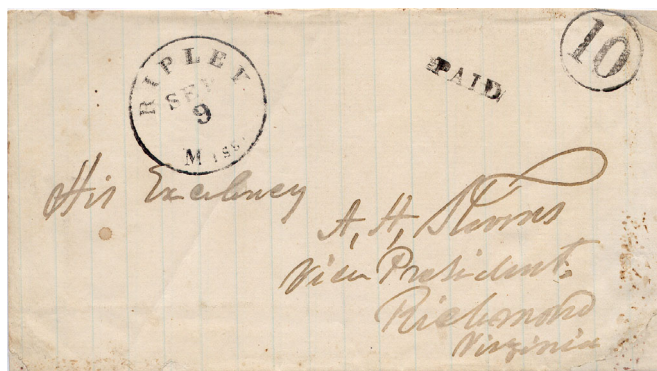 RIPLEY
SEP
9
Miss.
PAID
10
His Excelency
A, H, Stevens
Vice President
Richmond
Virginia